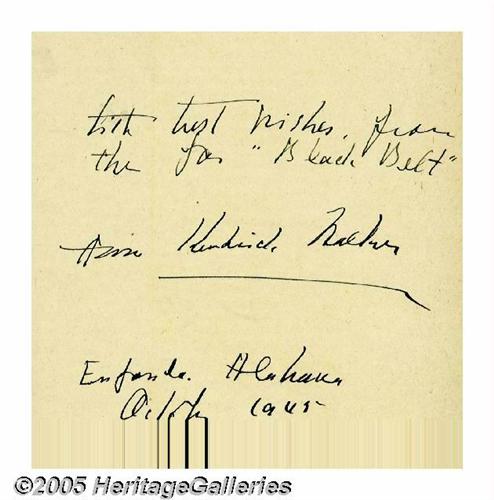 With best wishes, from
the far "Black Belt"
Anne Kendrick Walker
Eufaula. Alabama
October 1945
©2005 HeritageGalleries